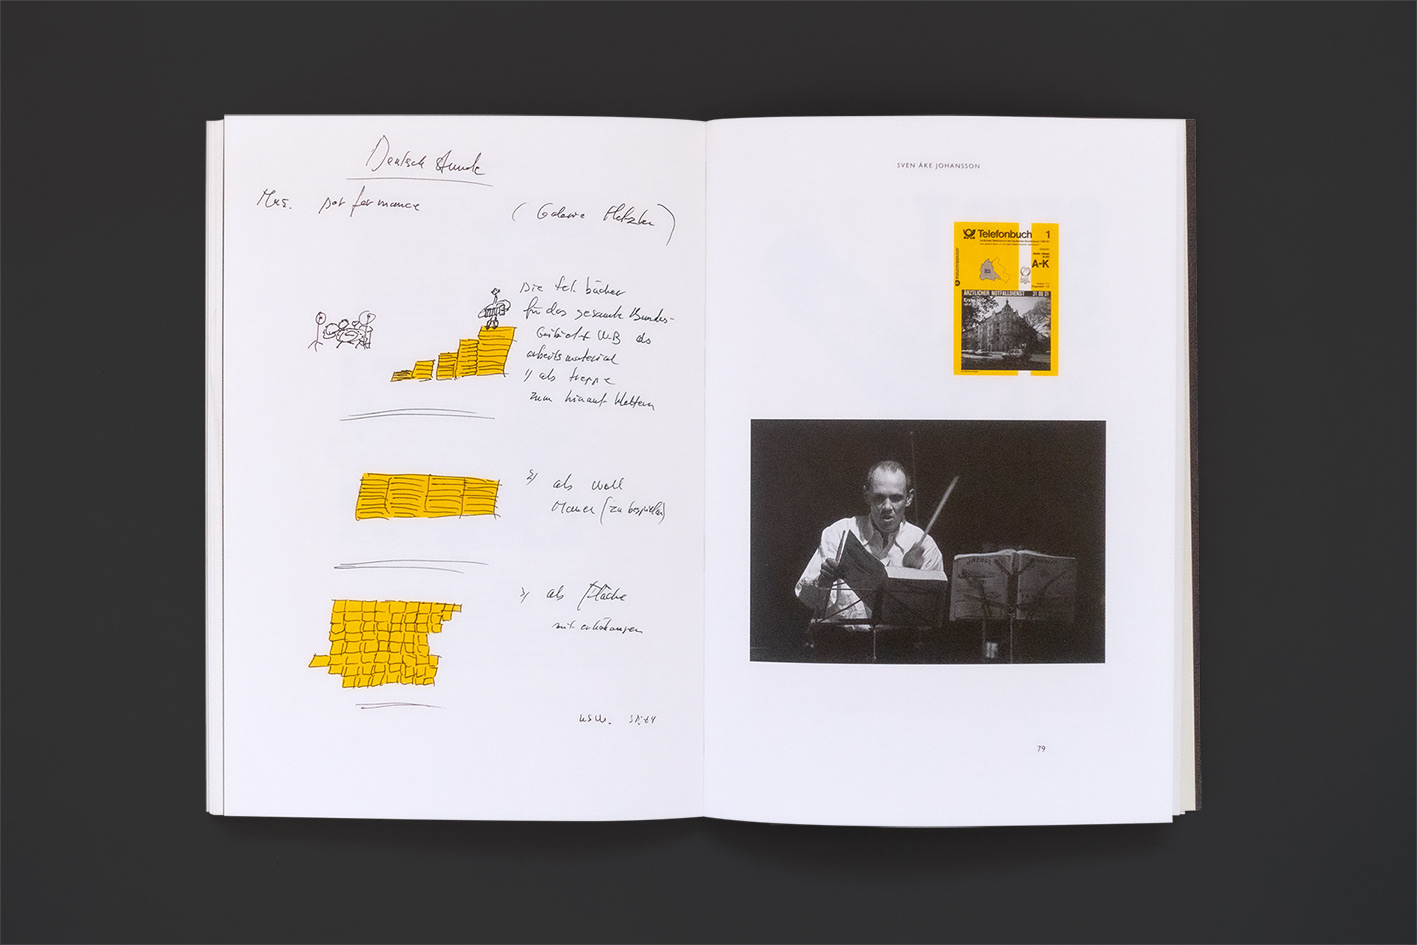 Deutsch stunde
Mus. performance
(Galerie Hetzler)
Die Tel. bücher
für das gesamte Bundes-
Gebiet + W-B als
arbeitsmaterial
1) als treppe
zum hinauf klettern
2) als Wall
Mauer (zu bespielen)
3) als fläche
mit erhöhungen
usw.
SVEN-ÅKE JOHANSSON
Telefonbuch 1
A-K
ÄRZTLICHER NOTFALLDIENST 31 00 31
79